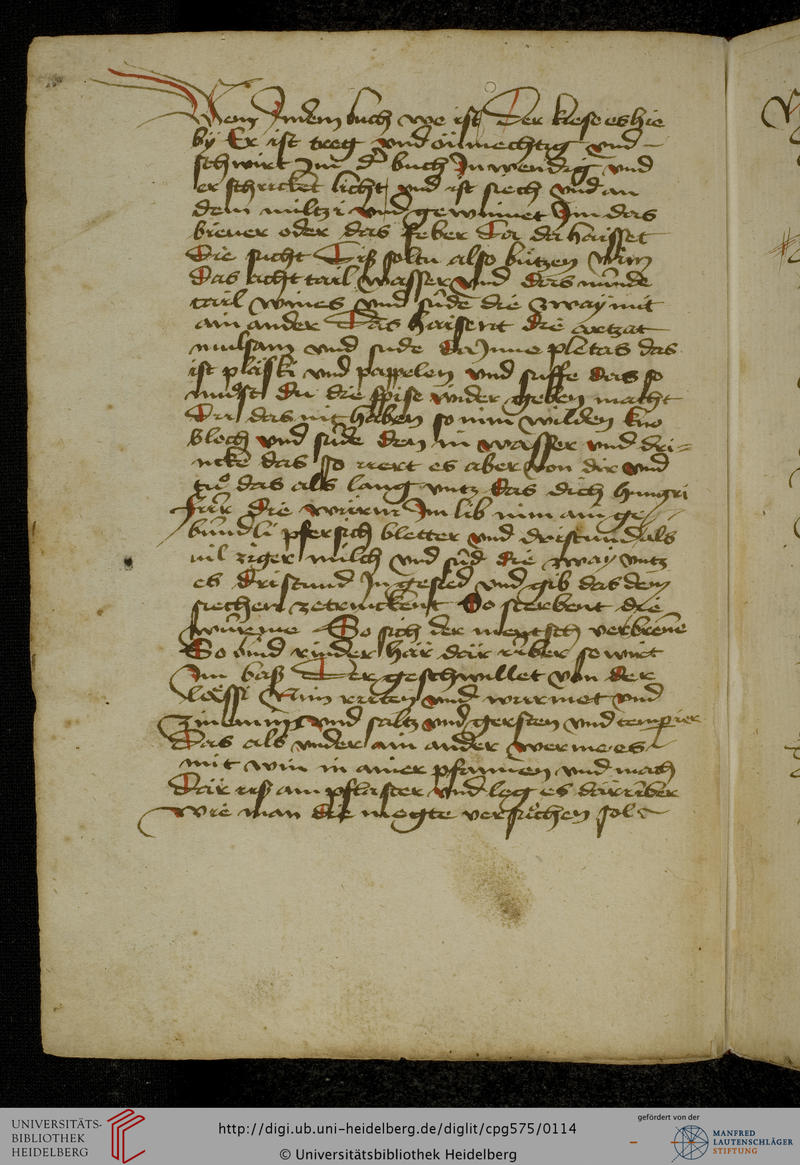 Wem in dem buch we ist Der kiese es hie
by Er ist treg vnd onmechtig vnd
sch wirt im der buch Jnwendig vnd
er schricket licht vnd ist siech vnd an
dem miltzi vnd gewinnet Im das
bieuer oder das feber Da da haisset
die sucht Diß soltu also bützen Nim
das acht tail wasser vnd das nünde
tail wines vnd süde die zway mit
ain ander Das haisent die artzat
mulsam vnd sude dar Jnne pletas das
ist vnd pappelen vnd suffe das so
du die spise wider geben macht
Du das nit haben so nim wilden kno
bloch vnd süde den in wasser vnd dri-
ncke das so uert es aber von dir vnd
tuͦ das als lang vntz das dich hungri
Für die würm Im lib nim ain ge
bündli pfersich bletter vnd dristund als
uil ziger milch vnd süd die zway vntz
es dristund In gesied vnd gib das dem
siechen ze trinckent So sterbent die
würme So sich der mentsch verbrene
So bind rinder har dar über so wirt
Im baß Der geschwullet von der
lässi Nim ruten vnd wurmet vnd
vnd saltz vnd gersten vnd temperier
Das als vnder ain ander werme es
mit win in ainer pfannen vnd mach
Dar uß ain pflaster vnd leg es dar über
Wie man die megte versüchen sol
UNIVERSITÄTS-
BIBLIOTHEK
HEIDELBERG
http://digi.ub.uni-heidelberg.de/diglit/cpg575/0114
© Universitätsbibliothek Heidelberg
gefördert von der
MANFRED
LAUTENSCHLÄGER
STIFTUNG